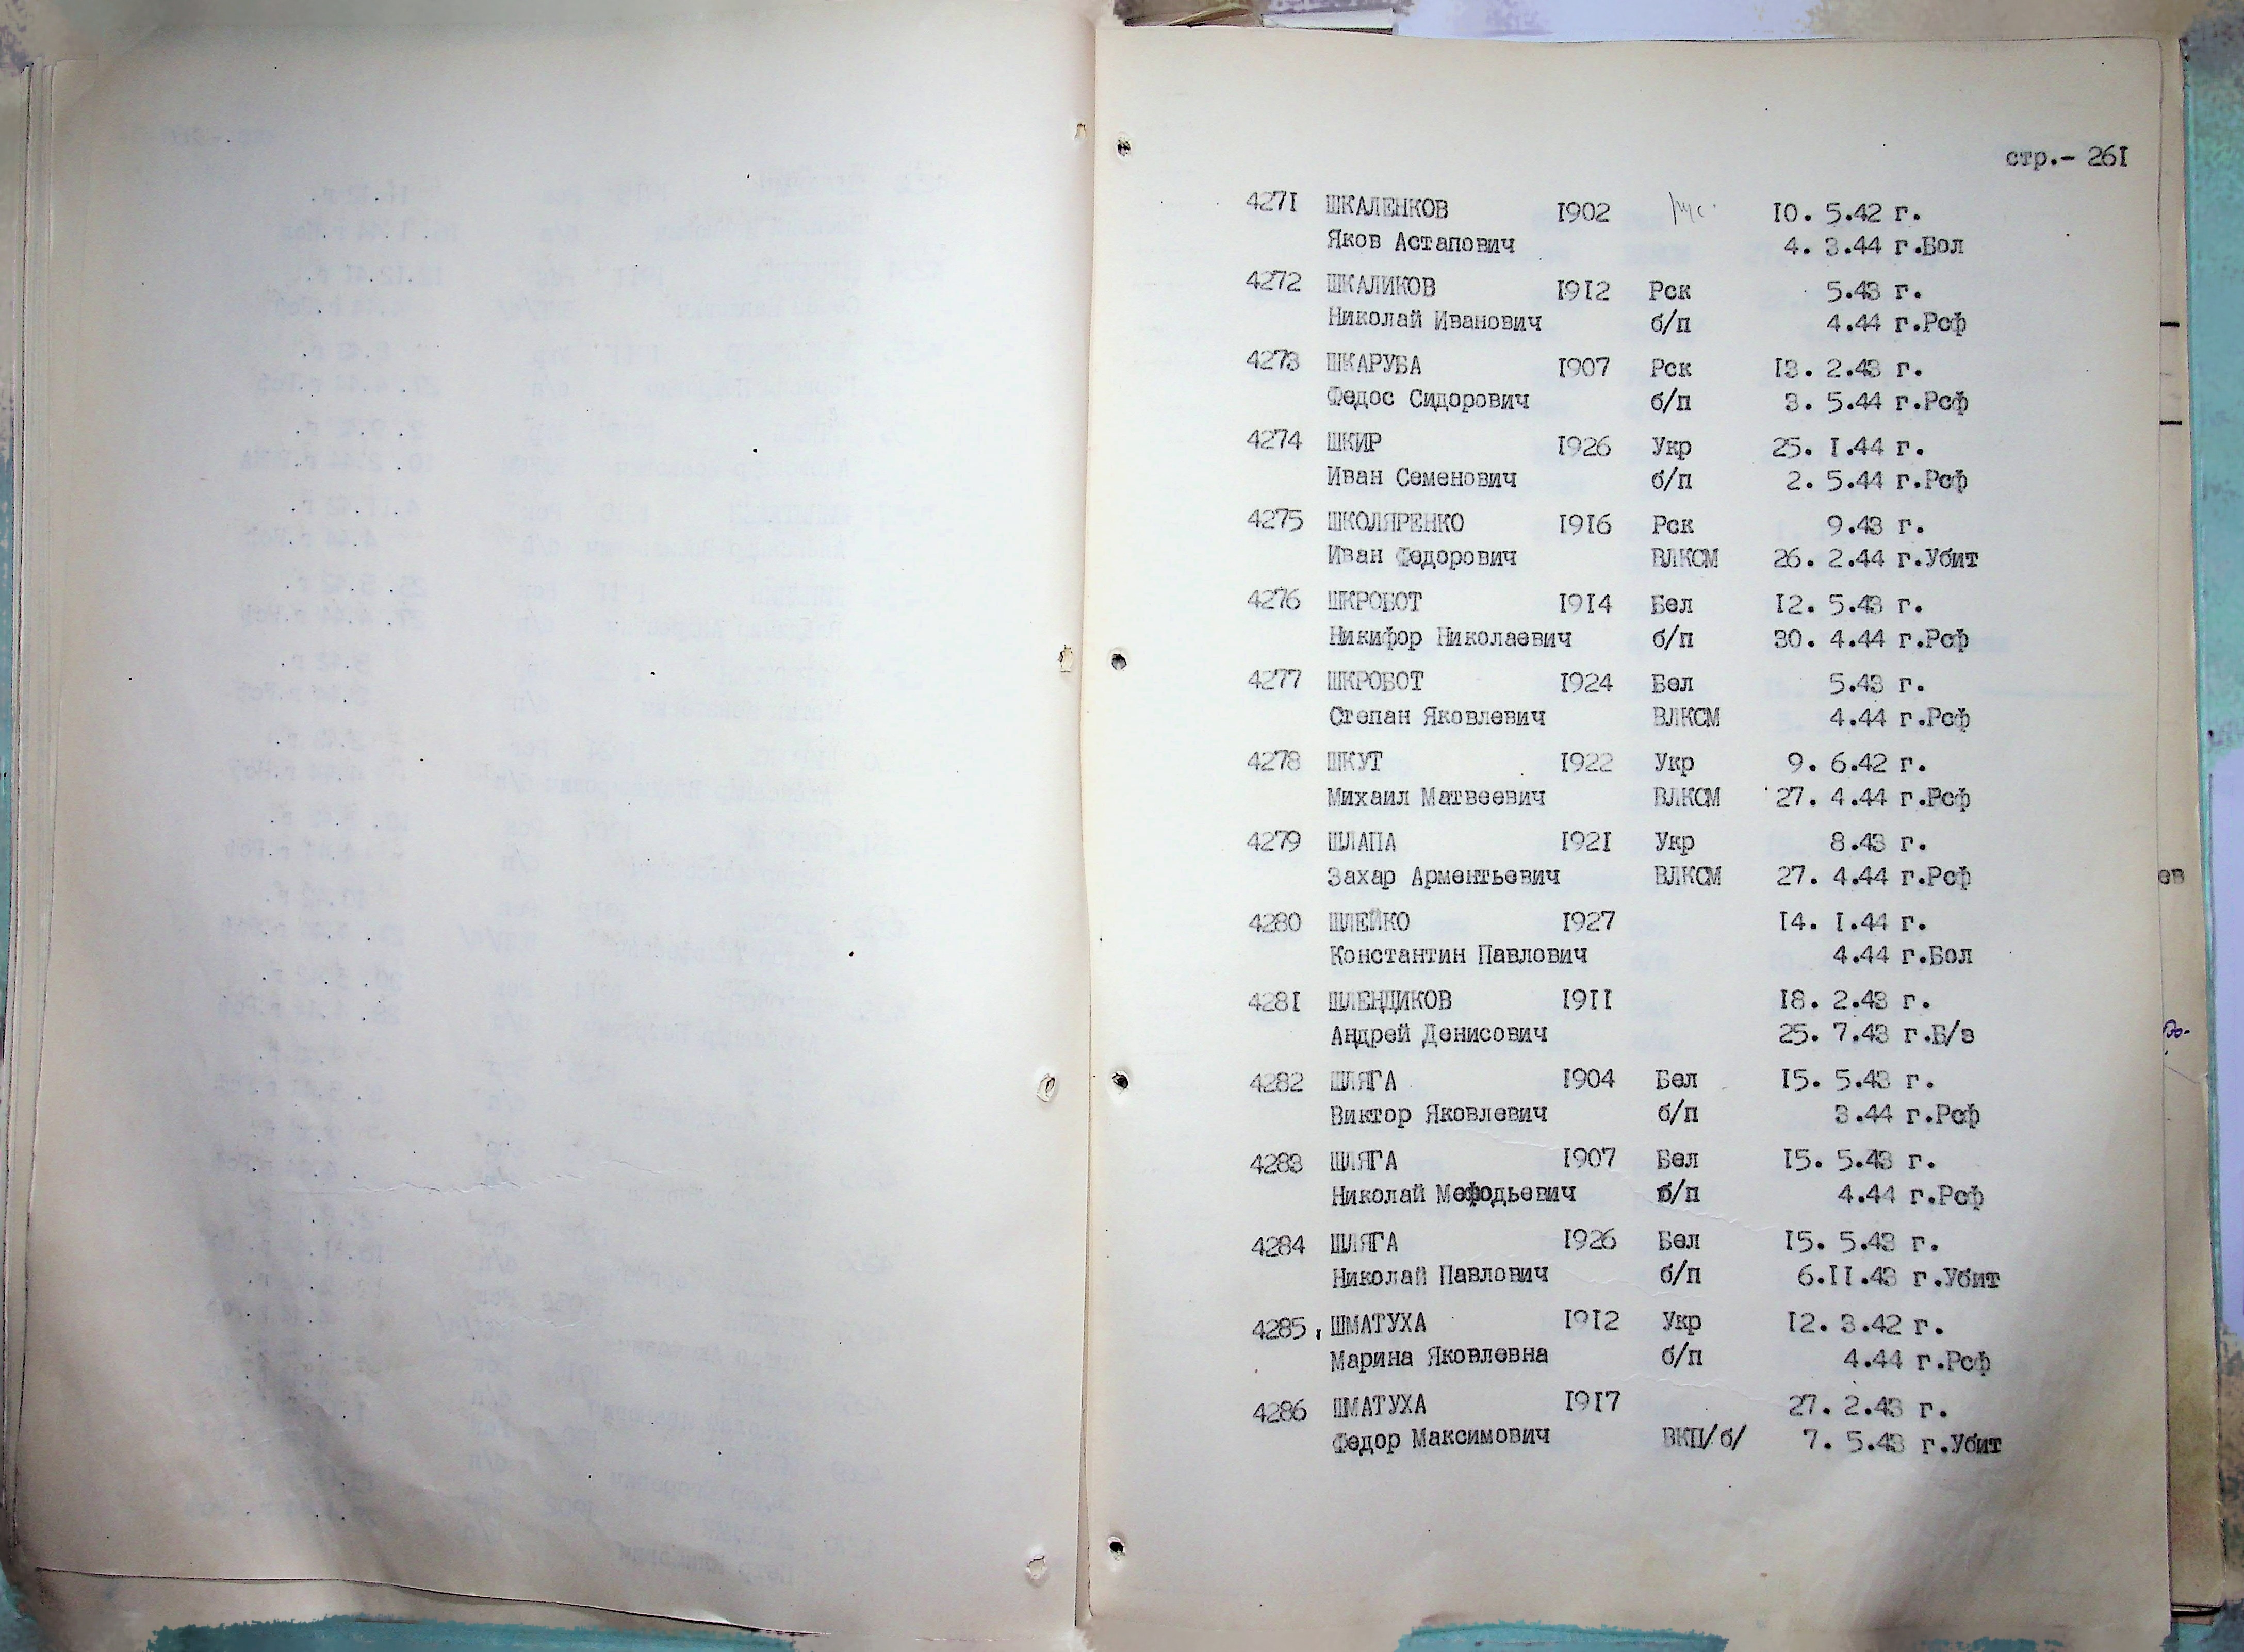 стр.- 261
4271 ШКАЛЕНКОВ 1902 рус. 10. 5.42 г.
Яков Астапович 4. 3.44 г.Бол
4272 ШКАЛИКОВ 1912 Рск 5.43 г.
Николай Иванович б/п 4.44 г.Рсф
4273 ШКАРУБА 1907 Рск 13. 2.43 г.
Федос Сидорович б/п 3. 5.44 г.Рсф
4274 ШКИР 1926 Укр 25. 1.44 г.
Иван Семенович б/п 2. 5.44 г.Рсф
4275 ШКОЛЯРЕНКО 1916 Рск 9.43 г.
Иван Федорович ВЛКСМ 26. 2.44 г.Убит
4276 ШКРОБОТ 1914 Бел 12. 5.43 г.
Никифор Николаевич б/п 30. 4.44 г.Рсф
4277 ШКРОБОТ 1924 Бел 5.43 г.
Степан Яковлевич ВЛКСМ 4.44 г.Рсф
4278 ШКУТ 1922 Укр 9. 6.42 г.
Михаил Матвеевич ВЛКСМ 27. 4.44 г.Рсф
4279 ШЛАПА 1921 Укр 8.43 г.
Захар Арментьевич ВЛКСМ 27. 4.44 г.Рсф
4280 ШЛЕЙКО 1927 14. 1.44 г.
Константин Павлович 4.44 г.Бол
4281 ШЛЕНДИКОВ 1911 18. 2.43 г.
Андрей Денисович 25. 7.43 г.Б/з
4282 ШЛЯГА 1904 Бел 15. 5.43 г.
Виктор Яковлевич б/п 3.44 г.Рсф
4283 ШЛЯГА 1907 Бел 15. 5.43 г.
Николай Мефодьевич б/п 4.44 г.Рсф
4284 ШЛЯГА 1926 Бел 15. 5.43 г.
Николай Павлович б/п 6.11.43 г.Убит
4285 ШМАТУХА 1912 Укр 12. 3.42 г.
Марина Яковлевна б/п 4.44 г.Рсф
4286 ШМАТУХА 1917 27. 2.43 г.
Федор Максимович ВКП/б/ 7. 5.43 г.Убит